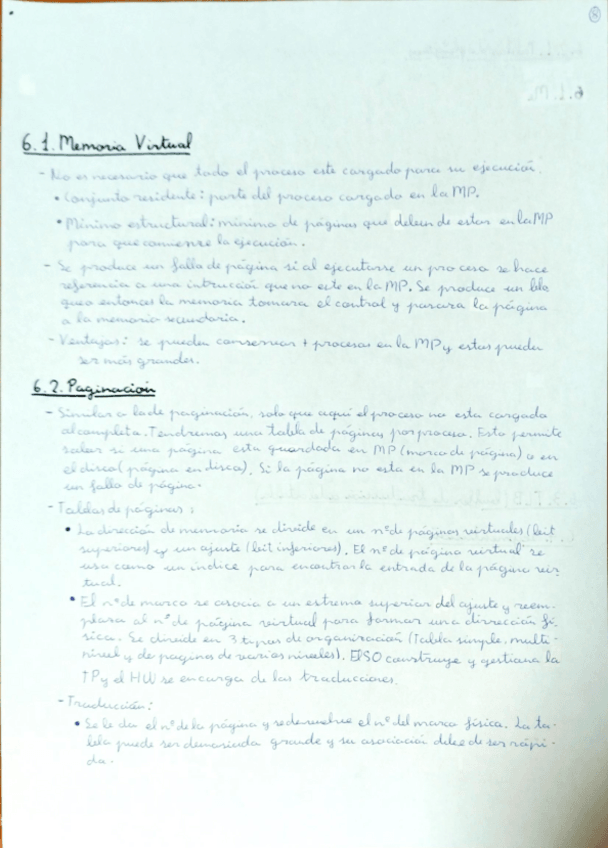 8
6.1. Memoria Virtual
- No es necesario que todo el proceso este cargado para su ejecución.
• Conjunto residente: parte del proceso cargado en la MP.
• Mínimo estructural: mínimo de páginas que deben de estar en la MP
para que comienze la ejecución.
- Se produce un fallo de página si al ejecutarse un proceso se hace
referencia a una intrucción que no este en la MP. Se produce un blo
queo entonces la memoria tomara el control y pasara la página
a la memoria secundaria.
- Ventajas: se pueden conservar + procesos en la MP y estos pueden
ser más grandes.
6.2. Paginación
- Similar a la de paginación, solo que aqui el proceso no esta cargado
al completo. Tendremos una tabla de páginas por proceso. Esto permite
saber si una página esta guardada en MP (marco de página) o en
el disco (página en disco). Si la página no esta en la MP se produce
un fallo de página.
- Tablas de páginas:
• La dirección de memoria se divide en un nº de páginas virtuales (bit
superiores) y un ajuste (bit inferiores). El nº de página virtual se
usa como un índice para encontrar la entrada de la página vir
tual.
• El nº de marco se asocia a un estremo superior del ajuste y reem-
plaza al nº de página virtual para formar una dirrección fí-
sica. Se divide en 3 tipos de organización (Tabla simple, multi-
nivel y de paginas de varios niveles). El SO construye y gestiona la
TP y el HW se encarga de las traducciones.
- Traducción:
• Se le da el nº de la página y se devuelve el nº del marco físico. La ta-
bla puede ser demasiada grande y su asociación debe de ser rápi-
da.